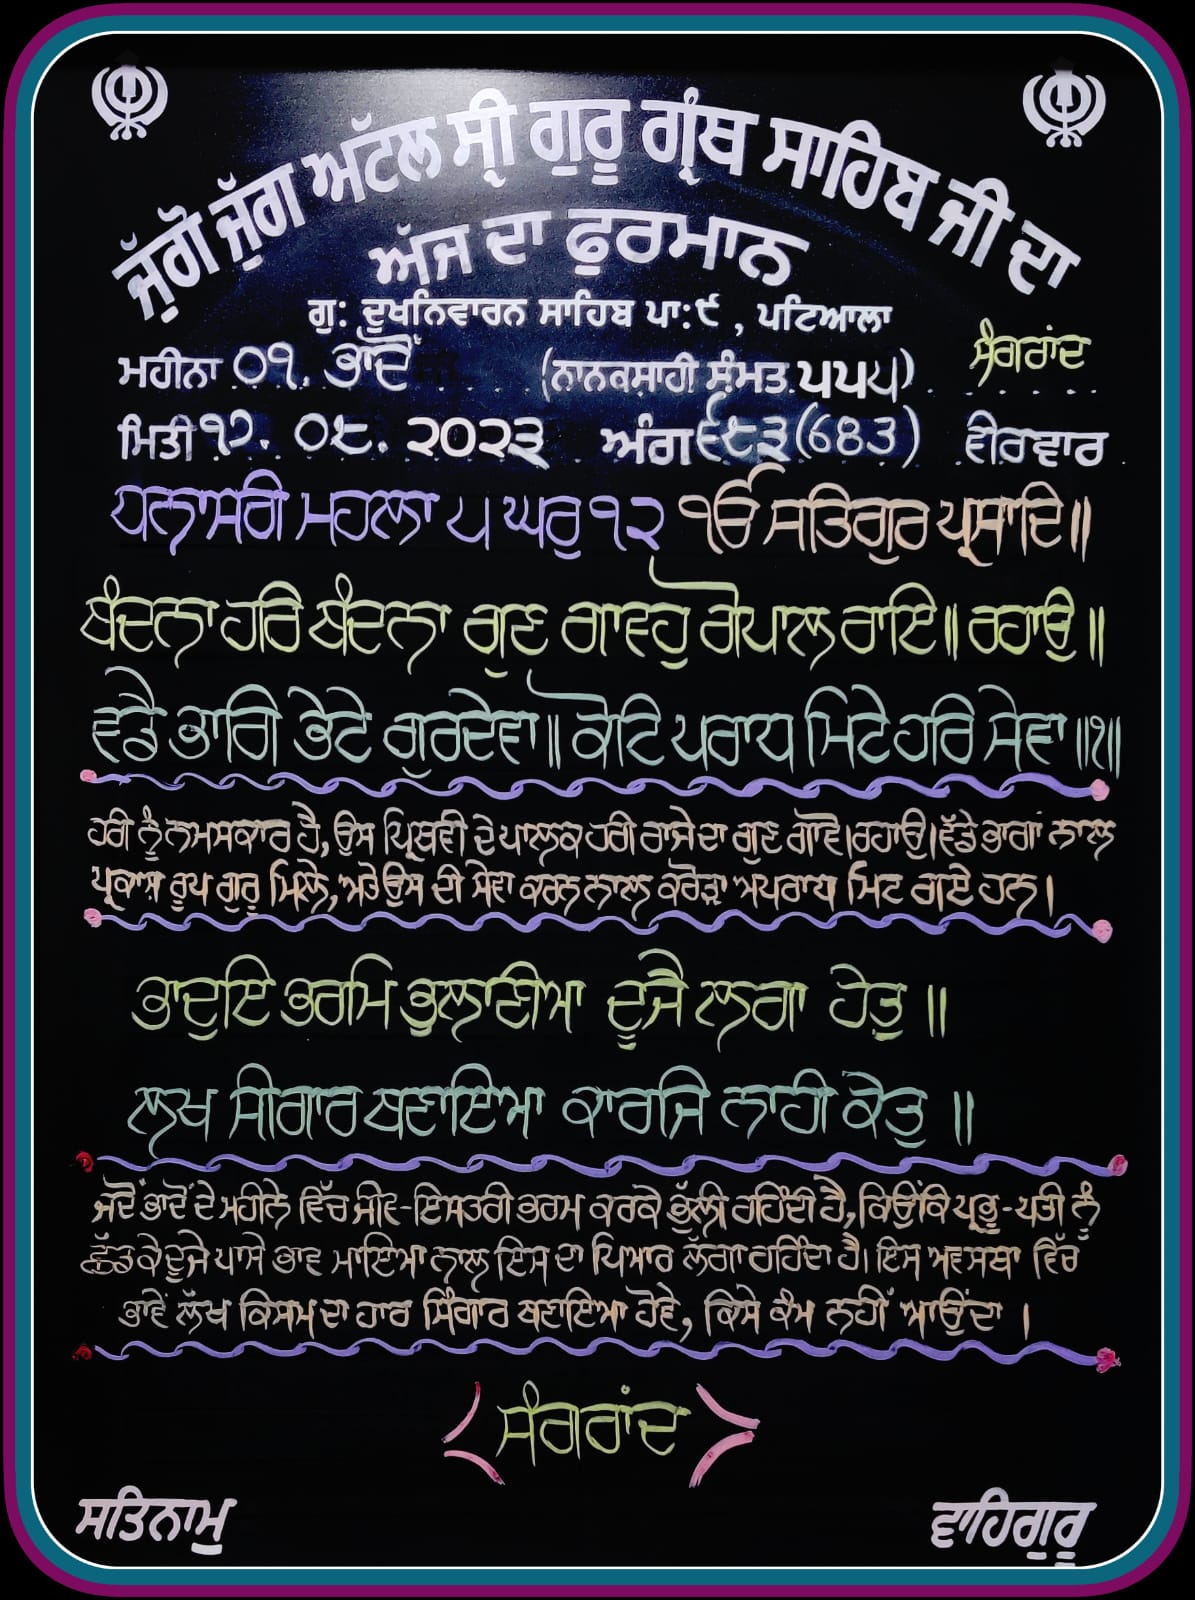 ਜੁੱਗੋ ਜੁੱਗ ਅਟੱਲ ਸ੍ਰੀ ਗੁਰੂ ਗ੍ਰੰਥ ਸਾਹਿਬ ਜੀ ਦਾ
ਅੱਜ ਦਾ ਫੁਰਮਾਨ
ਗੁ: ਦੂਖਨਿਵਾਰਨ ਸਾਹਿਬ ਪਾ:੯ , ਪਟਿਆਲਾ
ਸੰਗਰਾਂਦ
ਮਹੀਨਾ ੦੧. ਭਾਦੋਂ (ਨਾਨਕਸ਼ਾਹੀ ਸੰਮਤ ੫੫੫)
ਮਿਤੀ ੧੭. ੦੮. ੨੦੨੩ ਅੰਗ ੬੮੩ (683) ਵੀਰਵਾਰ
ਧਨਾਸਰੀ ਮਹਲਾ ੫ ਘਰੁ ੧੨ ੴ ਸਤਿਗੁਰ ਪ੍ਰਸਾਦਿ॥
ਬੰਦਨਾ ਹਰਿ ਬੰਦਨਾ ਗੁਣ ਗਾਵਹੁ ਗੋਪਾਲ ਰਾਇ॥ ਰਹਾਉ॥
ਵਡੈ ਭਾਗਿ ਭੇਟੇ ਗੁਰਦੇਵਾ॥ ਕੋਟਿ ਪਰਾਧ ਮਿਟੇ ਹਰਿ ਸੇਵਾ॥੧॥
ਹਰੀ ਨੂੰ ਨਮਸਕਾਰ ਹੈ, ਉਸ ਪ੍ਰਿਥਵੀ ਦੇ ਪਾਲਕ ਹਰੀ ਰਾਜੇ ਦਾ ਗੁਣ ਗਾਂਵੋ।ਰਹਾਉ।ਵੱਡੇ ਭਾਗਾਂ ਨਾਲ
ਪ੍ਰਕਾਸ਼ ਰੂਪ ਗੁਰੂ ਮਿਲੇ, ਅਤੇ ਉਸ ਦੀ ਸੇਵਾ ਕਰਨ ਨਾਲ ਕਰੋੜਾਂ ਅਪਰਾਧ ਮਿਟ ਗਏ ਹਨ।
ਭਾਦੁਇ ਭਰਮਿ ਭੁਲਾਣੀਆ ਦੂਜੈ ਲਗਾ ਹੇਤੁ॥
ਲਖ ਸੀਗਾਰ ਬਣਾਇਆ ਕਾਰਜਿ ਨਾਹੀ ਕੇਤੁ॥
ਜਦੋਂ ਭਾਦੋਂ ਦੇ ਮਹੀਨੇ ਵਿੱਚ ਜੀਵ-ਇਸਤਰੀ ਭਰਮ ਕਰਕੇ ਭੁੱਲੀ ਰਹਿੰਦੀ ਹੈ, ਕਿਉਂਕਿ ਪ੍ਰਭੂ-ਪਤੀ ਨੂੰ
ਛੱਡ ਕੇ ਦੂਜੇ ਪਾਸੇ ਭਾਵ ਮਾਇਆ ਨਾਲ ਇਸ ਦਾ ਪਿਆਰ ਲੱਗਾ ਰਹਿੰਦਾ ਹੈ। ਇਸ ਅਵਸਥਾ ਵਿੱਚ
ਭਾਵੇਂ ਲੱਖ ਕਿਸਮ ਦਾ ਹਾਰ ਸ਼ਿੰਗਾਰ ਬਣਾਇਆ ਹੋਵੇ, ਕਿਸੇ ਕੰਮ ਨਹੀਂ ਆਉਂਦਾ।
ਸੰਗਰਾਂਦ
ਸਤਿਨਾਮੁ ਵਾਹਿਗੁਰੂ